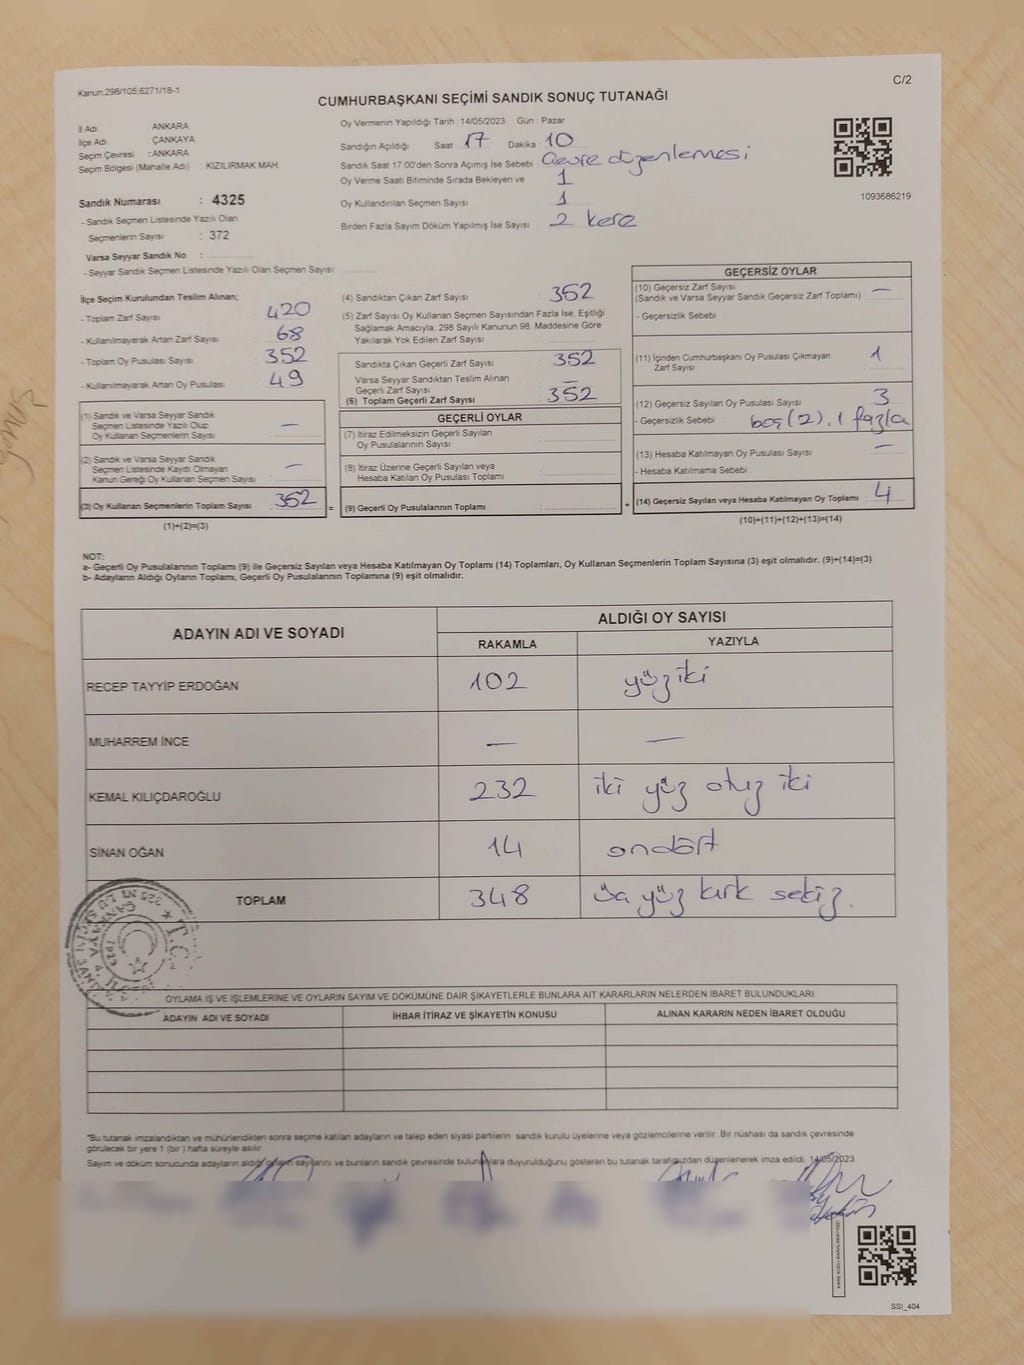 Kanun:298/105;6271/18-1
C/2
CUMHURBAŞKANI SEÇİMİ SANDIK SONUÇ TUTANAĞI
İl Adı ANKARA
İlçe Adı ÇANKAYA
Seçim Çevresi : ANKARA
Seçim Bölgesi (Mahalle Adı) : KIZILIRMAK MAH.
Sandık Numarası : 4325
- Sandık Seçmen Listesinde Yazılı Olan
Seçmenlerin Sayısı : 372
Varsa Seyyar Sandık No :
- Seyyar Sandık Seçmen Listesinde Yazılı Olan Seçmen Sayısı
Oy Vermenin Yapıldığı Tarih : 14/05/2023 Gün : Pazar
Sandığın Açıldığı Saat 17 Dakika 10
Sandık Saat 17:00'den Sonra Açımış İse Sebebi Çevre düzenlemesi
Oy Verme Saati Bitiminde Sırada Bekleyen ve 1
Oy Kullandırılan Seçmen Sayısı 1
Birden Fazla Sayım Döküm Yapılmış İse Sayısı 2 kere
1093686219
İlçe Seçim Kurulundan Teslim Alınan;
- Toplam Zarf Sayısı : 420
- Kullanılmayarak Artan Zarf Sayısı : 68
- Toplam Oy Pusulası Sayısı : 352
- Kullanılmayarak Artan Oy Pusulası : 49
(1) Sandık ve Varsa Seyyar Sandık
Seçmen Listesinde Yazılı Olup
Oy Kullanan Seçmenlerin Sayısı : —
(2) Sandık ve Varsa Seyyar Sandık
Seçmen Listesinde Kayıtlı Olmayan
Kanun Gereği Oy Kullanan Seçmen Sayısı : —
(3) Oy Kullanan Seçmenlerin Toplam Sayısı : 352
(1)+(2)=(3)
(4) Sandıktan Çıkan Zarf Sayısı : 352
(5) Zarf Sayısı Oy Kullanan Seçmen Sayısından Fazla İse, Eşitliği
Sağlamak Amacıyla; 298 Sayılı Kanunun 98. Maddesine Göre
Yakılarak Yok Edilen Zarf Sayısı :
Sandıkta Çıkan Geçerli Zarf Sayısı : 352
Varsa Seyyar Sandıktan Teslim Alınan
Geçerli Zarf Sayısı : —
(6) Toplam Geçerli Zarf Sayısı : 352
GEÇERLİ OYLAR
(7) İtiraz Edilmeksizin Geçerli Sayılan
Oy Pusulasının Sayısı :
(8) İtiraz Üzerine Geçerli Sayılan veya
Hesaba Katılan Oy Pusulası Toplamı :
= (9) Geçerli Oy Pusulalarının Toplamı : +
GEÇERSİZ OYLAR
(10) Geçersiz Zarf Sayısı : —
(Sandık ve Varsa Seyyar Sandık Geçersiz Zarf Toplamı)
- Geçersizlik Sebebi :
(11) İçinden Cumhurbaşkanı Oy Pusulası Çıkmayan
Zarf Sayısı : 1
(12) Geçersiz Sayılan Oy Pusulası Sayısı : 3
- Geçersizlik Sebebi : boş (2), 1 fazla
(13) Hesaba Katılmayan Oy Pusulası Sayısı : —
- Hesaba Katılmama Sebebi :
(14) Geçersiz Sayılan veya Hesaba Katılmayan Oy Toplamı : 4
(10)+(11)+(12)+(13)=(14)
NOT:
a- Geçerli Oy Pusulalarının Toplamı (9) ile Geçersiz Sayılan veya Hesaba Katılmayan Oy Toplamı (14) Toplamları, Oy Kullanan Seçmenlerin Toplam Sayısına (3) eşit olmalıdır. (9)+(14)=(3)
b- Adayların Aldığı Oyların Toplamı, Geçerli Oy Pusulalarının Toplamına (9) eşit olmalıdır.
ADAYIN ADI VE SOYADI ALDIĞI OY SAYISI
RAKAMLA YAZIYLA
RECEP TAYYİP ERDOĞAN 102 yüz iki
MUHARREM İNCE — —
KEMAL KILIÇDAROĞLU 232 iki yüz otuz iki
SİNAN OĞAN 14 ondört
TOPLAM 348 üç yüz kırk sekiz.
T.C.
ÇANKAYA
OYLAMA İŞ VE İŞLEMLERİNE VE OYLARIN SAYIM VE DÖKÜMÜNE DAİR ŞİKAYETLERLE BUNLARA AİT KARARLARIN NELERDEN İBARET BULUNDUKLARI
ADAYIN ADI VE SOYADI İHBAR İTİRAZ VE ŞİKAYETİN KONUSU ALINAN KARARIN NEDEN İBARET OLDUĞU
*Bu tutanak imzalandıktan ve mühürlendikten sonra seçime katılan adayların ve talep eden siyasi partilerin sandık kurulu üyelerine veya gözlemcilerine verilir. Bir nüshası da sandık çevresinde
görülecek bir yere 1 (bir ) hafta süreyle asılır.
Sayım ve döküm sonucunda adayların aldığı oyların sayılarını ve bunların sandık çevresinde bulunanlara duyurulduğunu gösteren bu tutanak tarafımızdan düzenlenerek imza edildi. 14/05/2023
SSI_404